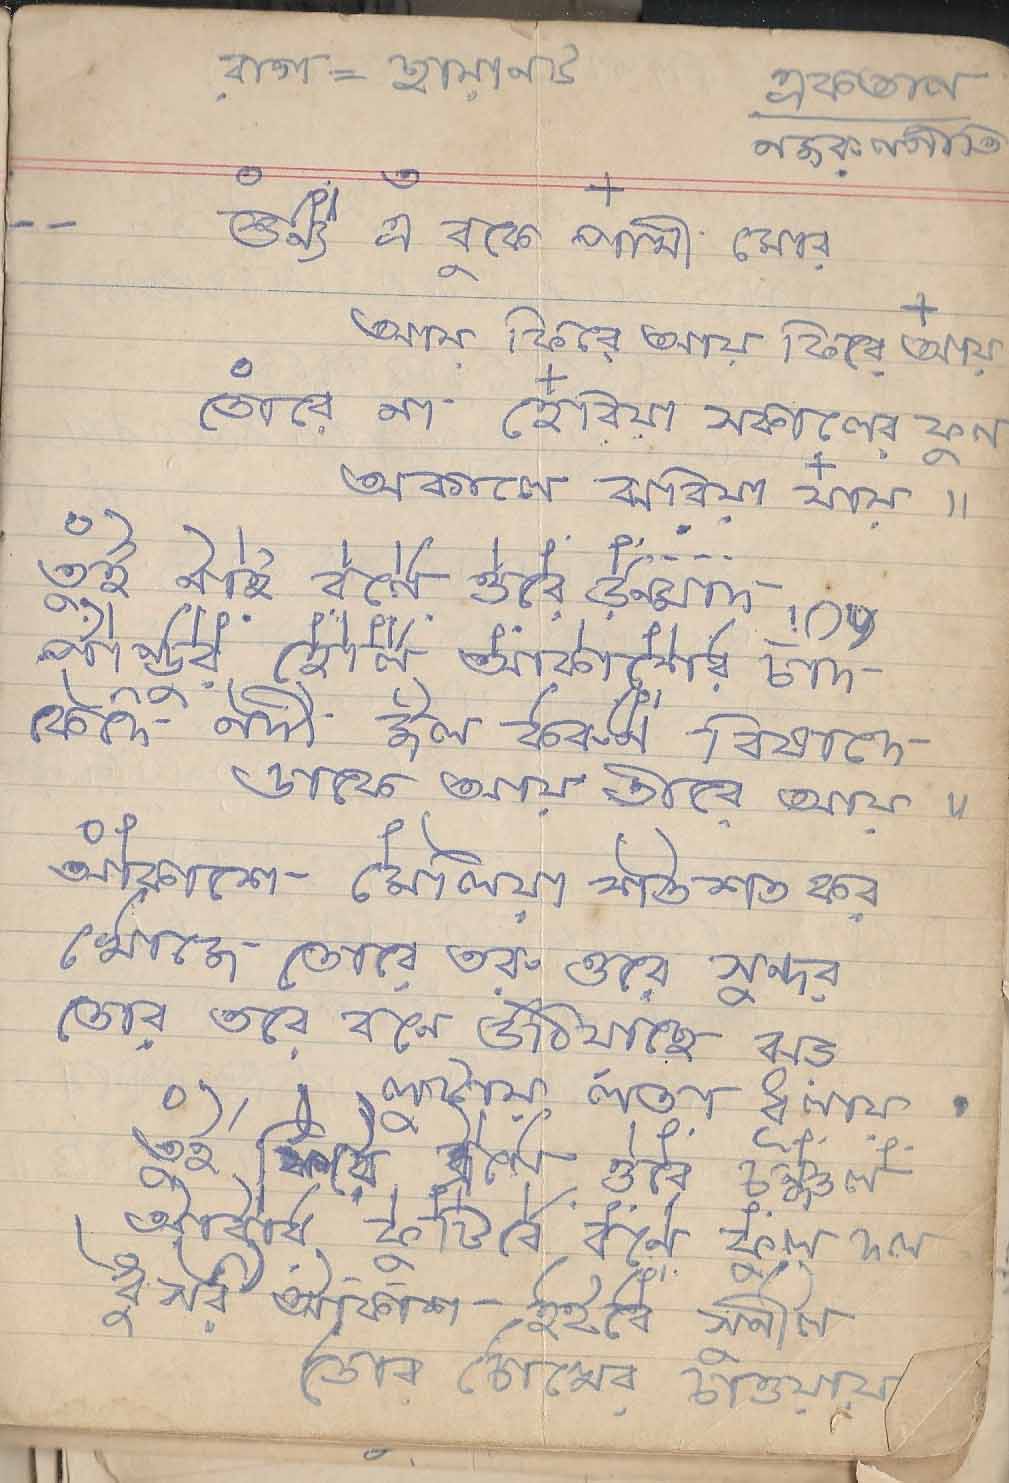 রাগ = ছায়ানট
একতাল
নজরুলগীতি
শুন্য এ বুকে পাখী মোর
আয় ফিরে আয় ফিরে আয়
তোরে না হেরিয়া সকালের ফুল
অকালে ঝরিয়া যায় ॥
তুই নাই বলে ওরে উন্মাদ
পান্ডুর হোল আকাশের চাঁদ
কেঁদে নদী জল করুণ বিষাদে
ডাকে আয় তীরে আয় ॥
আকাশে মেলিয়া শত শত কর
খোঁজে তোরে তরু ওরে সুন্দর
তোর তরে বনে উঠিয়াছে ঝড়
লুটায় লতা ধূলায়
তুই ফিরে এলে ওরে চঞ্চল
আবার ফুটিবে বনে ফুল দল
ধুসর আকাশ হইবে সুনীল
তোর চোখের চাওয়ায়